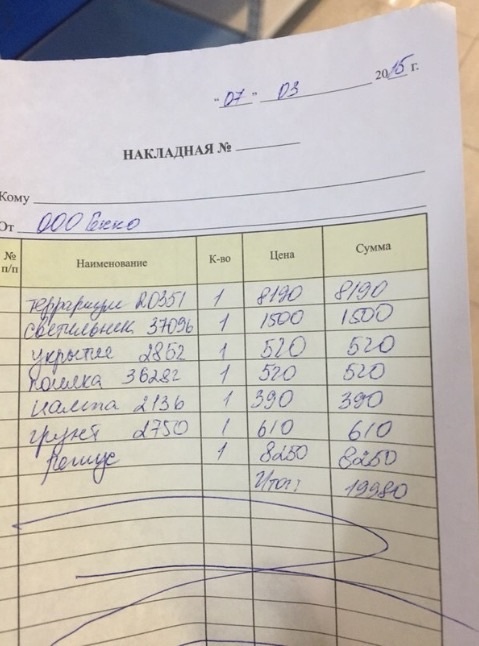 "07" 03 2015 г.
НАКЛАДНАЯ №
Кому
От ООО Екко
№ п/п Наименование К-во Цена Сумма
террариум 20351 1 8190 8190
светильник 37096 1 1500 1500
укрытие 2852 1 520 520
поилка 36282 1 520 520
лампа 2136 1 390 390
грунт 2750 1 610 610
1 8250 8250
Итог: 19980